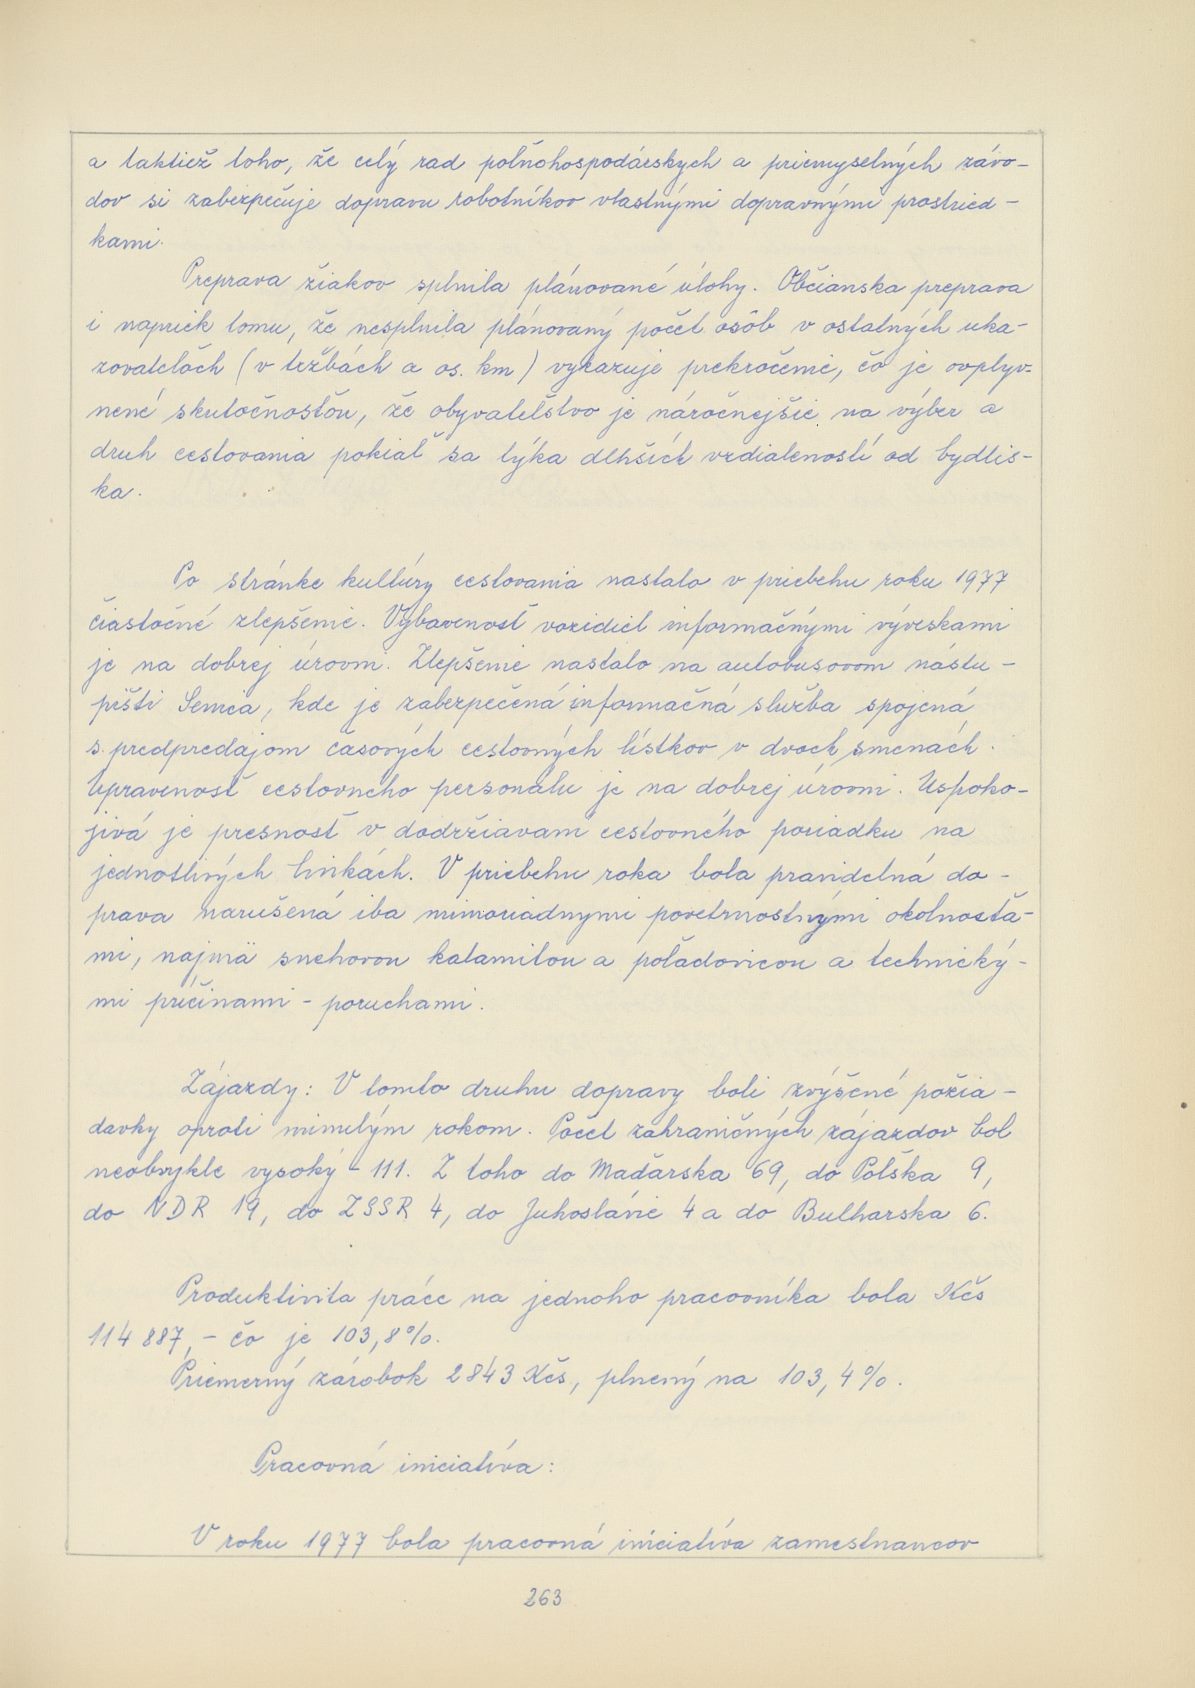 a taktiež toho, že celý rad poľnohospodárskych a priemyselných závo-
dov si zabezpečuje dopravu robotníkov vlastnými dopravnými prostried-
kami.
Preprava žiakov splnila plánované úlohy. Občianska preprava
i napriek tomu, že nesplnila plánovaný počet osôb v ostatných uka-
zovateľoch (v tržbách a os. km) vykazuje prekročenie, čo je ovplyv-
nené skutočnosťou, že obyvateľstvo je náročnejšie na výber a
druh cestovania pokiaľ sa týka dlhších vzdialeností od bydlis-
ka.
Po stránke kultúry cestovania nastalo v priebehu roku 1977
čiastočné zlepšenie. Vybavenosť vozidiel informačnými výveskami
je na dobrej úrovni. Zlepšenie nastalo na autobusovom nástu-
pišti Senica, kde je zabezpečená informačná služba spojená
s predpredajom časových cestovných lístkov v dvoch smenách.
Upravenosť cestovného personálu je na dobrej úrovni. Uspoko-
jivá je presnosť v dodržiavaní cestovného poriadku na
jednotlivých linkách. V priebehu roka bola pravidelná do-
prava narušená iba mimoriadnymi povetrnostnými okolnosťa-
mi, najmä snehovou kalamitou a poľadovicou a technický-
mi príčinami - poruchami.
Zájazdy: V tomto druhu dopravy boli zvýšené požia-
davky oproti minulým rokom. Počet zahraničných zájazdov bol
neobvykle vysoký - 111. Z toho do Maďarska 69, do Poľska 9,
do NDR 19, do ZSSR 4, do Juhoslávie 4 a do Bulharska 6.
Produktivita práce na jedného pracovníka bola Kčs
114 887,- čo je 103,8%.
Priemerný zárobok 2843 Kčs, plnený na 103,4%.
Pracovná iniciatíva:
V roku 1977 bola pracovná iniciatíva zamestnancov
263